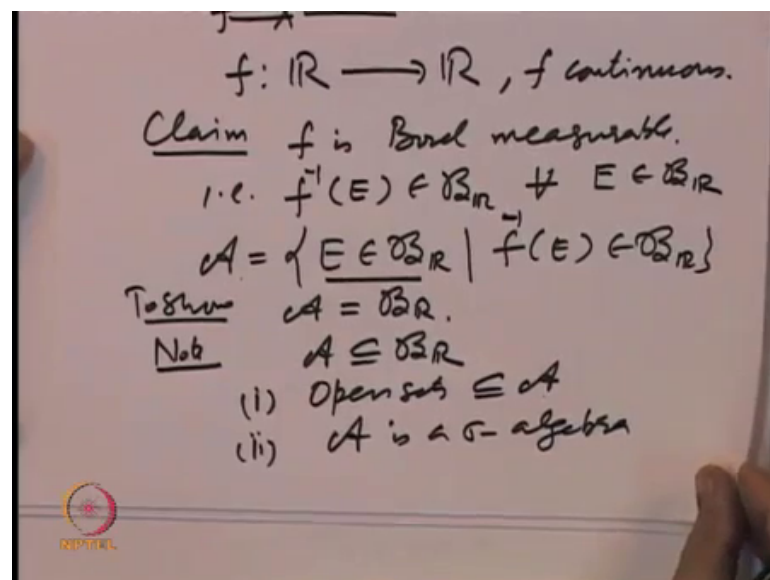 f: ℝ ⟶ ℝ, f continuous.
Claim f is Borel measurable.
i.e. f⁻¹(E) ∈ 𝓑_ℝ ∀ E ∈ 𝓑_ℝ
𝒜 = { E ∈ 𝓑_ℝ | f⁻¹(E) ∈ 𝓑_ℝ }
To show 𝒜 = 𝓑_ℝ.
Note 𝒜 ⊆ 𝓑_ℝ
(i) Open sets ⊆ 𝒜
(ii) 𝒜 is a σ-algebra
NPTEL